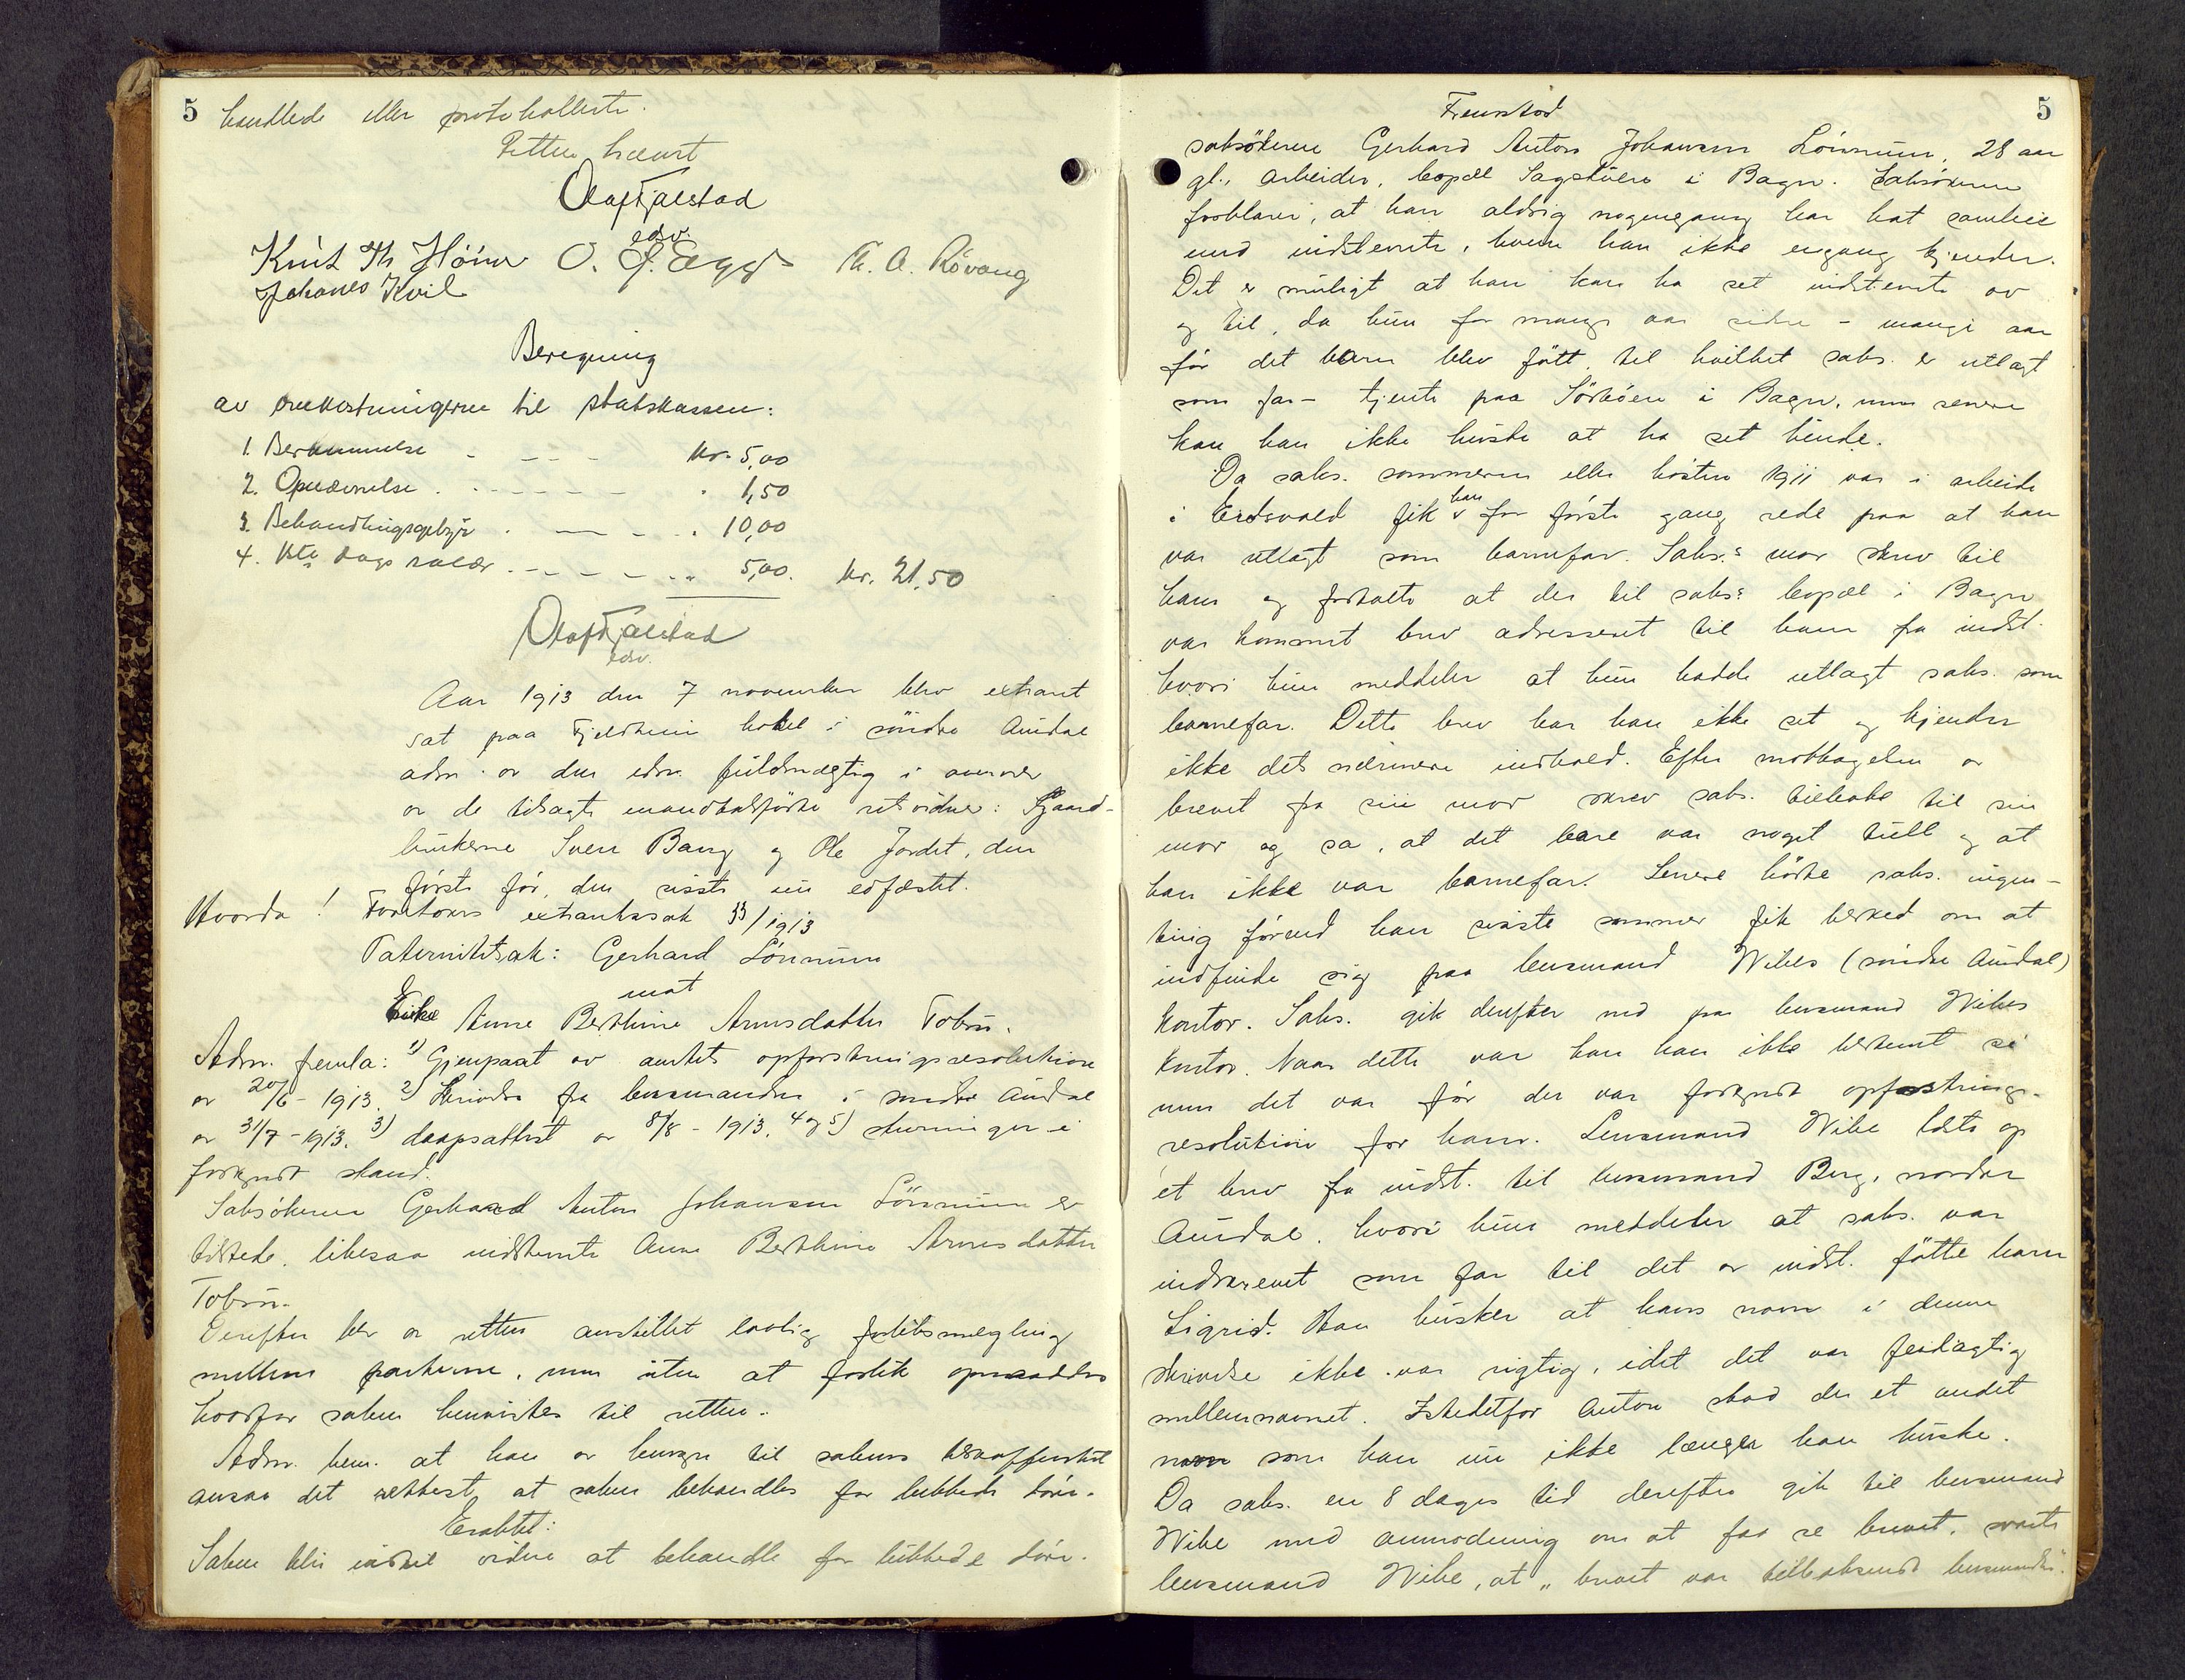 5
handlede eller protokollerte.
Retten hævet
Olaf Fjalstad
edv.
Knut Th Höino O. J. Egge Th. O. Rövang
Johanes Kvil
Beregning
av omkostningerne til statskassen:
1. Berammelse - - - - kr. 5,00
2. Opnævnelse . - - - - - " 1,50
3. Behandlingsgebyr . - - - . 10,00
4. 1ste dags salær . - - - - „ 5,00. kr. 21,50
Olaf Fjalstad
edv.
Aar 1913 den 7 november blev extraret
sat paa Fjeldheim hotel i söndre Aurdal
adm. av den edsv. fuldmægtig i overvær
av de tilsagte mandtalsförte retsvidner: Gaard-
brukerne Sven Bang og Ole Jordet, den
förste för, den sisste nu edfæstet.
Hvorda! Foretokes extraretssak 33/1913
Paternitetsak: Gerhard Lönnum
mot
Enke Anne Berthine Arnesdatter Tobrü.
Adm. fremla: 1) Gjenpart av amtets opfostringsresolution
av 20/6 - 1913. 2) Skrivelse fra lensmanden i söndre Aurdal
av 31/7 - 1913. 3) daapsattest av 8/8 - 1913. 4 og 5) stevninger i
forkyndt stand.
Saksökeren Gerhard Anton Johansen Lönnum er
tilstede, likesaa indstevnte Anne Berthine Arnesdatter
Tobrü.
Derefter blev av retten anstillet lovlig forliksmegling
mellem parterne, men uten at forlik opnaaddes
hvorfor saken henvistes til retten.
Adm. bem. at han av hensyn til sakens beskaffenhet
ansaa det rettest, at saken behandles for lukkede döre.
Eraktet:
Saken blir indtil videre at behandle for lukkede döre.
5
Fremstod
saksökeren Gerhard Anton Johansen Lönnum, 28 aar
gl., arbeider, bopæl Sagstuen i Bagn. Saksökeren
forklarer, at han aldrig nogengang har hat samleie
med indstevnte, hvem han ikke engang kjender.
Det er muligt at han kan ha set indstevnte av
og til, da hun for mange aar siden - mange aar
för det barn blev fött, til hvilket saks. er utlagt
som far - tjente paa Sörböen i Bagn, men senere
kan han ikke huske at ha set hende.
Da saks. sommeren eller hösten 1911 var i arbeide
i Eidsvold fik han for förste gang rede paa at han
var utlagt som barnefar. Saks.s mor skrev til
ham og fortalte at der til saks.s bopæl i Bagn
var kommet brev adresseret til ham fra indst.
hvori hun meddeler at hun hadde utlagt saks. som
barnefar. Dette brev har han ikke set og kjender
ikke dets nærmere indhold. Efter mottagelsen av
brevet fra sin mor skrev saks. tilbake til sin
mor og sa, at det bare var noget tull og at
han ikke var barnefar. Senere hörte saks. ingen-
ting förend han sisste sommer fik besked om at
indfinde sig paa lensmand Wibes (söndre Aurdal)
kontor. Saks. gik derefter ned paa lensmand Wibes
kontor. Naar dette var kan han ikke bestemt si
men det var för der var forkyndt opfostrings-
resolution for ham. Lensmand Wibe læste op
et brev fra indst. til lensmand Berg, nordre
Aurdal, hvori hun meddeler at saks. var
indskrevet som far til det av indst. fötte barn
Sigrid. Han husker at hans navn i denne
skrivelse ikke var rigtig, idet det var feilagtig
mellemnavnet. Istedetfor Anton stod der et andet
navn som han nu ikke længer kan huske.
Da saks. en 8 dages tid derefter gik til lensmand
Wibe med anmodning om at faa se brevet, svarte
lensmand Wibe, at „brevet var tilbakesendt lensmanden".